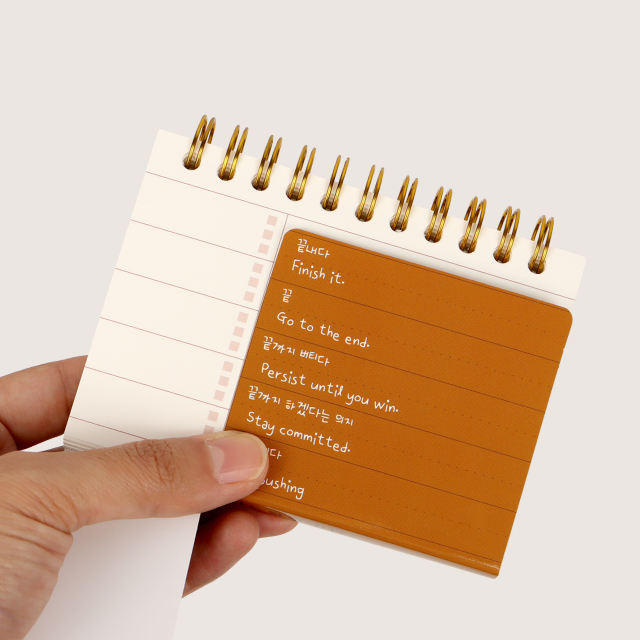 끝내다
Finish it.
끝
Go to the end.
끝까지 버티다
Persist until you win.
끝까지 하겠다는 의지
Stay committed.